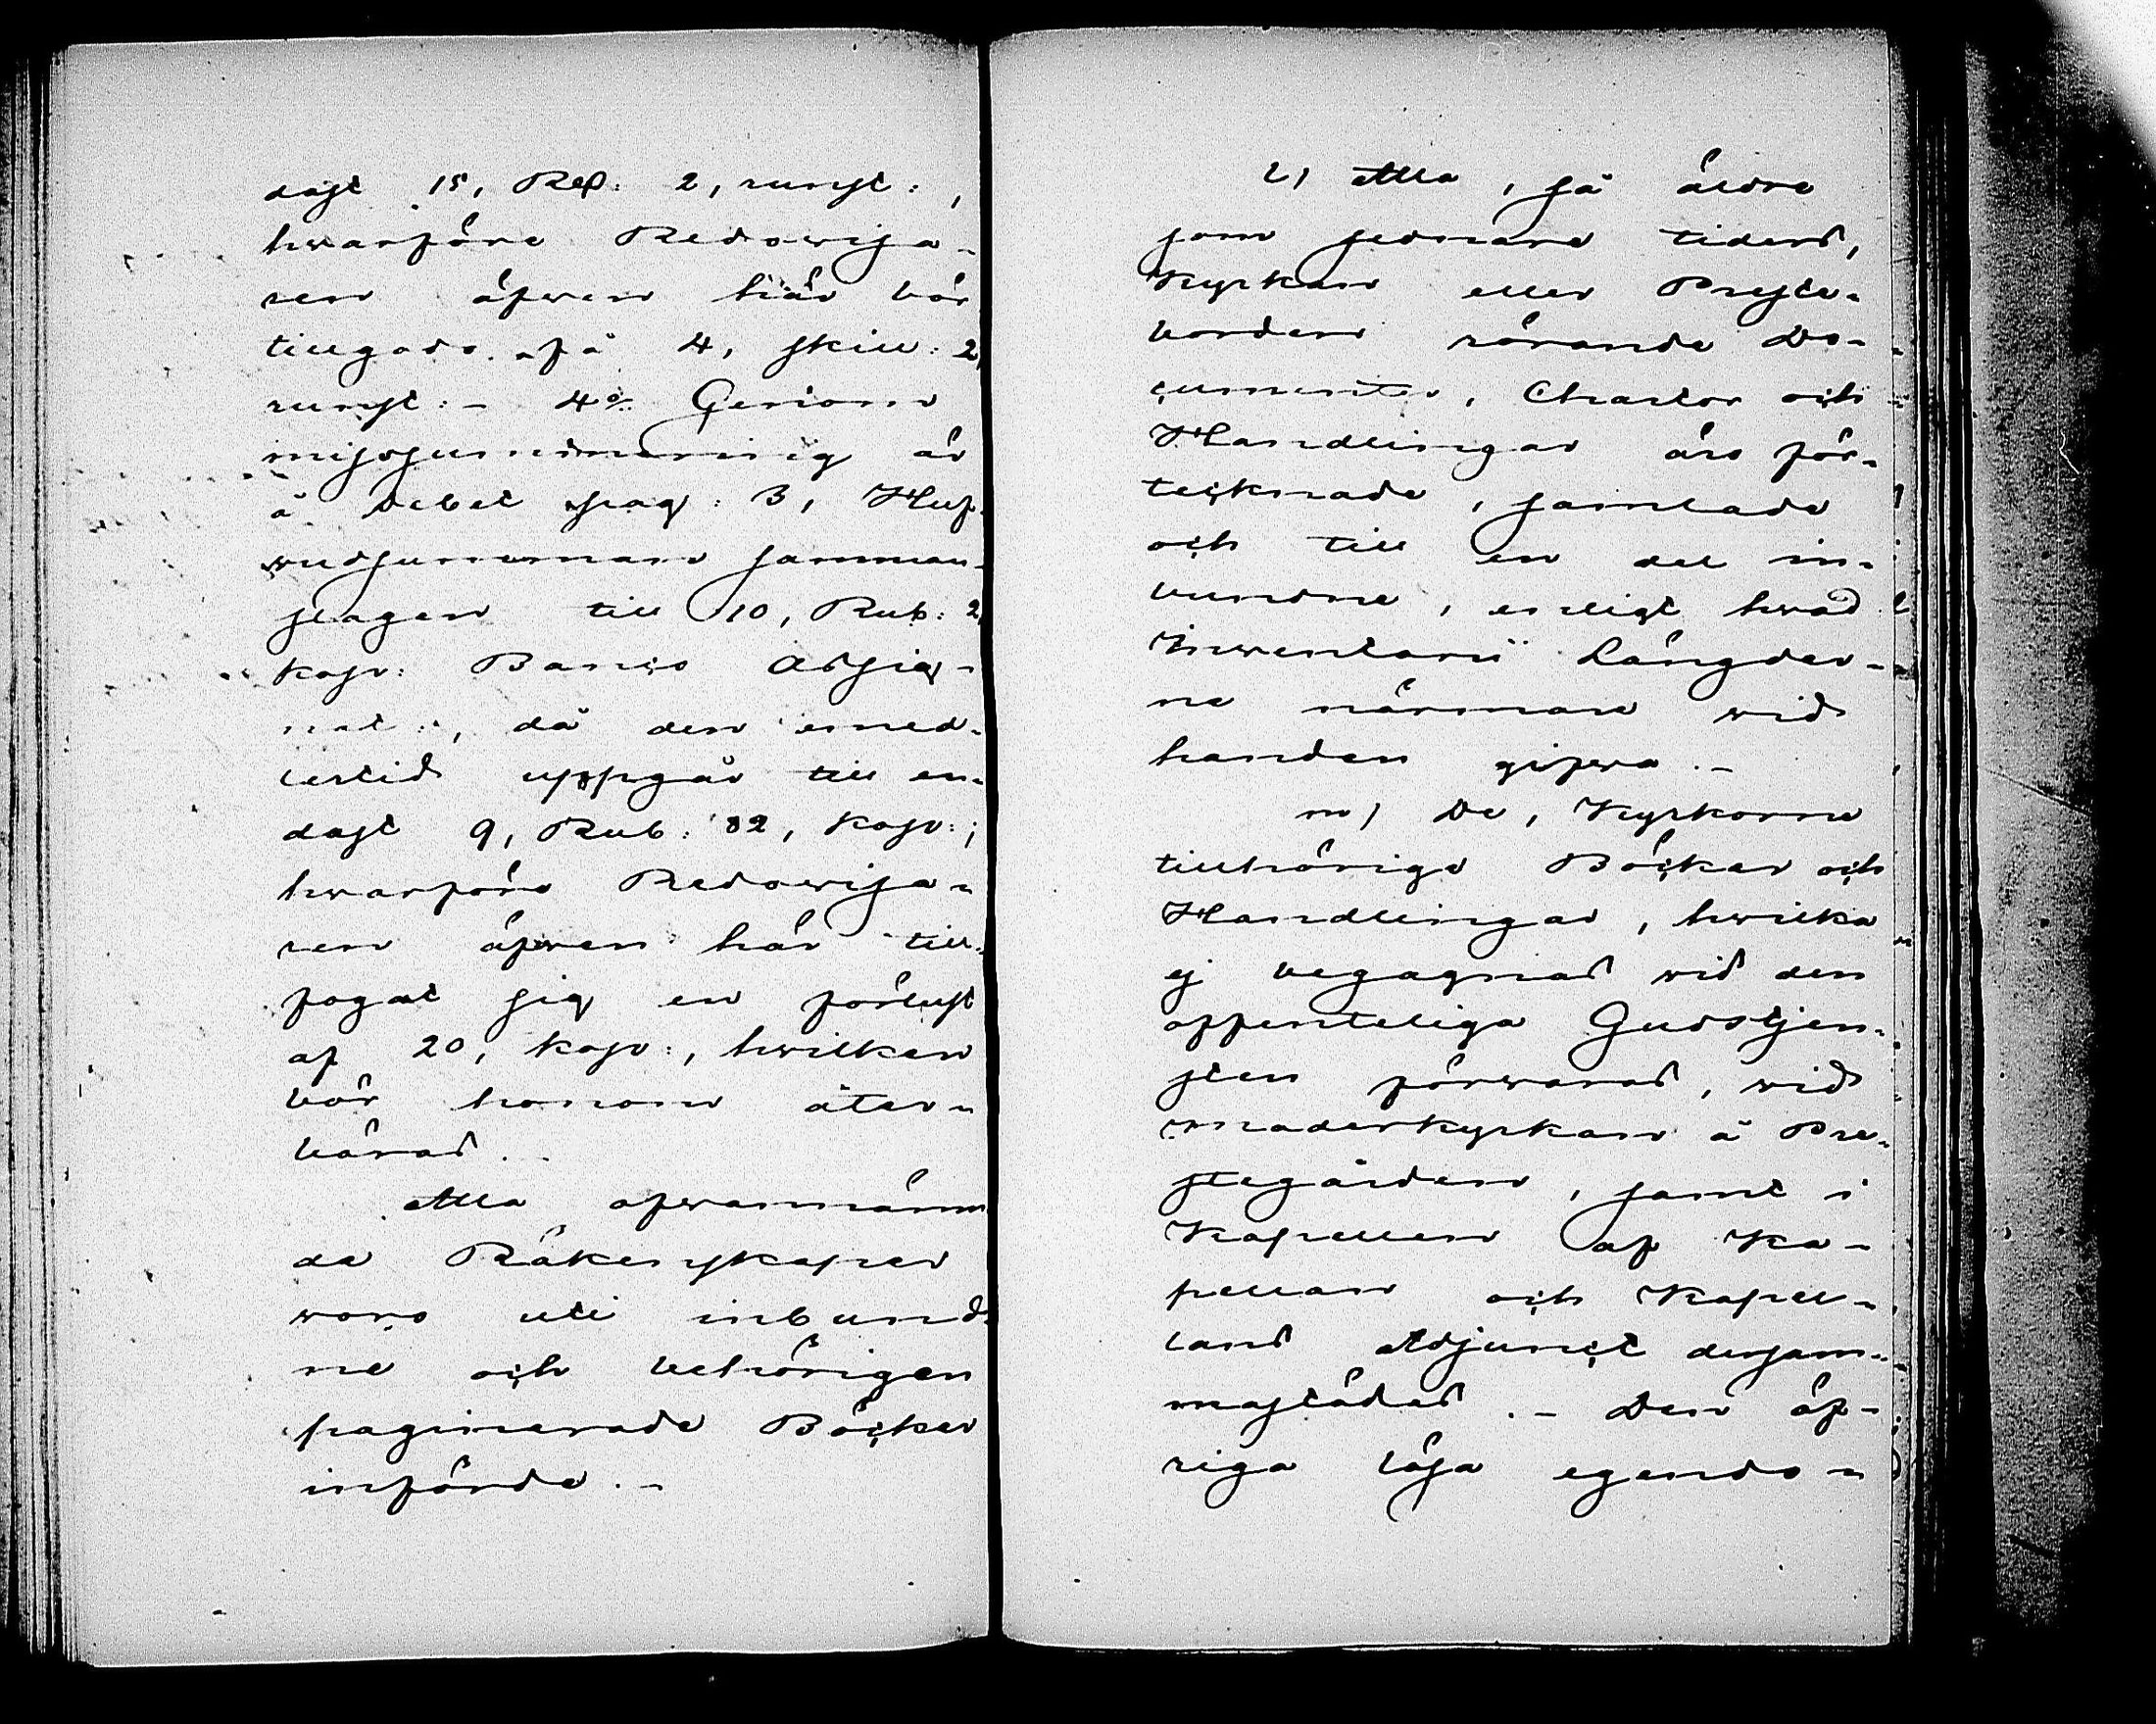 dast 15, Rd: 2, runst:,
hwarföre Redowisa-
ren äfwen här bör
tillgodo. på 4, skill: 2,
runst: - 4:o Genom
missummering är
å Debet pag: 3, Huf-
wudsumman samman-
slagen till 10, Rub: 2,
kop: Banco Assig-
nat:, då den emed-
lertid uppgår till en-
dast 9, Rub: 82, kop:;
hwarföre Redowisa-
ren äfwen här till-
fogat sig en förlust
af 20, kop:, hwilken
bör honom åter-
bäras.
Alla ofwannämn
da Räkenskaper
woro uti inbund-
ne och behörigen
paginerade Böcker
införde. -
l) Alla, så äldre
som sednare tiders,
Kyrkan eller Preste-
borden rörande Do-
cumenter, Chartor och
Handlingar äro för-
tecknade, samlade
och till en del in-
bundne, enligt hwad
Inwentarii Längder-
ne närmare wid
handen gifwa. -
m) De, Kyrkorne
tillhöriga Böcker och
Handlingar, hwilka
ej begagnas wid den
offenteliga Gudstjen-
sten förwaras, wid
moderkyrkan å Pre-
stegården, samt i
Kapellen af Ka-
pellan och Kapel-
lans Adjunct dersam-
mastädes. - Den öf-
riga lösa egendo-